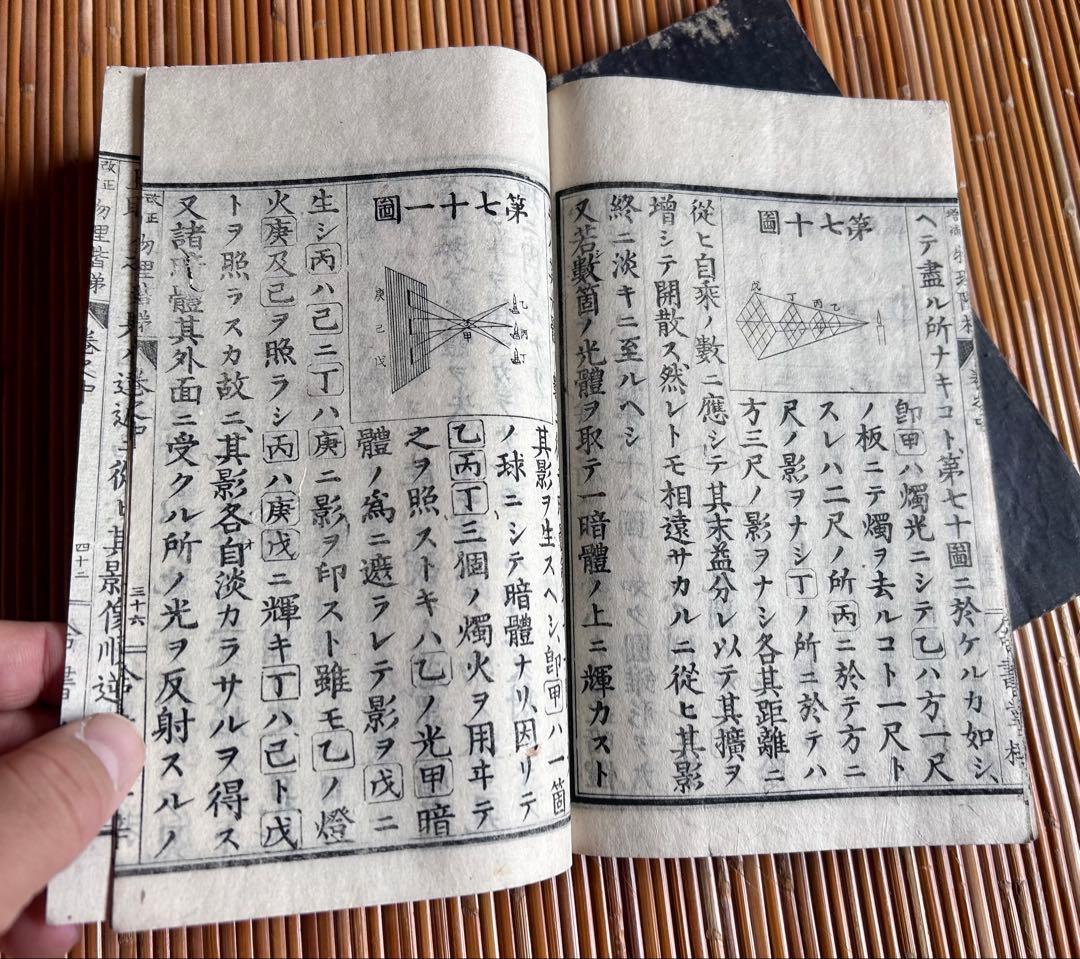 ヘテ盡ル所ナキコト、第七十圖ニ於ケルカ如シ、
第七十圖
戊
丁
丙
乙
卽甲ハ燭光ニシテ乙ハ方一尺
ノ板ニテ燭ヲ去ルコト一尺ト
スレハ二尺ノ所丙ニ於テ方二
尺ノ影ヲナシ丁ノ所ニ於テハ
方三尺ノ影ヲナシ各其距離ニ
從ヒ自乘ノ數ニ應シテ其末益分レ以テ其擴ヲ
增シテ開散ス、然レトモ相遠サカルニ從ヒ其影
終ニ淡キニ至ルヘシ
又若數箇ノ光體ヲ取テ一暗體ノ上ニ輝カスト
其影ヲ生スヘシ、卽甲ハ一箇
第七十一圖
乙
丙
丁
甲
庚
己
戊
ノ球ニシテ暗體ナリ、因リテ
乙丙丁三個ノ燭火ヲ用ヰテ
之ヲ照ストキハ乙ノ光甲暗
體ノ爲ニ遮ラレテ影ヲ戊ニ
生シ丙ハ己ニ丁ハ庚ニ影ヲ印スト雖モ乙ノ燈
火庚及己ヲ照ラシ丙ハ庚戊ニ輝キ丁ハ己ト戊
トヲ照ラスカ故ニ、其影各自淡カラサルヲ得ス
又諸體其外面ニ受クル所ノ光ヲ反射スルノ
改正物理階梯
卷之中
三十六
改正物理階梯
卷之中
四十二